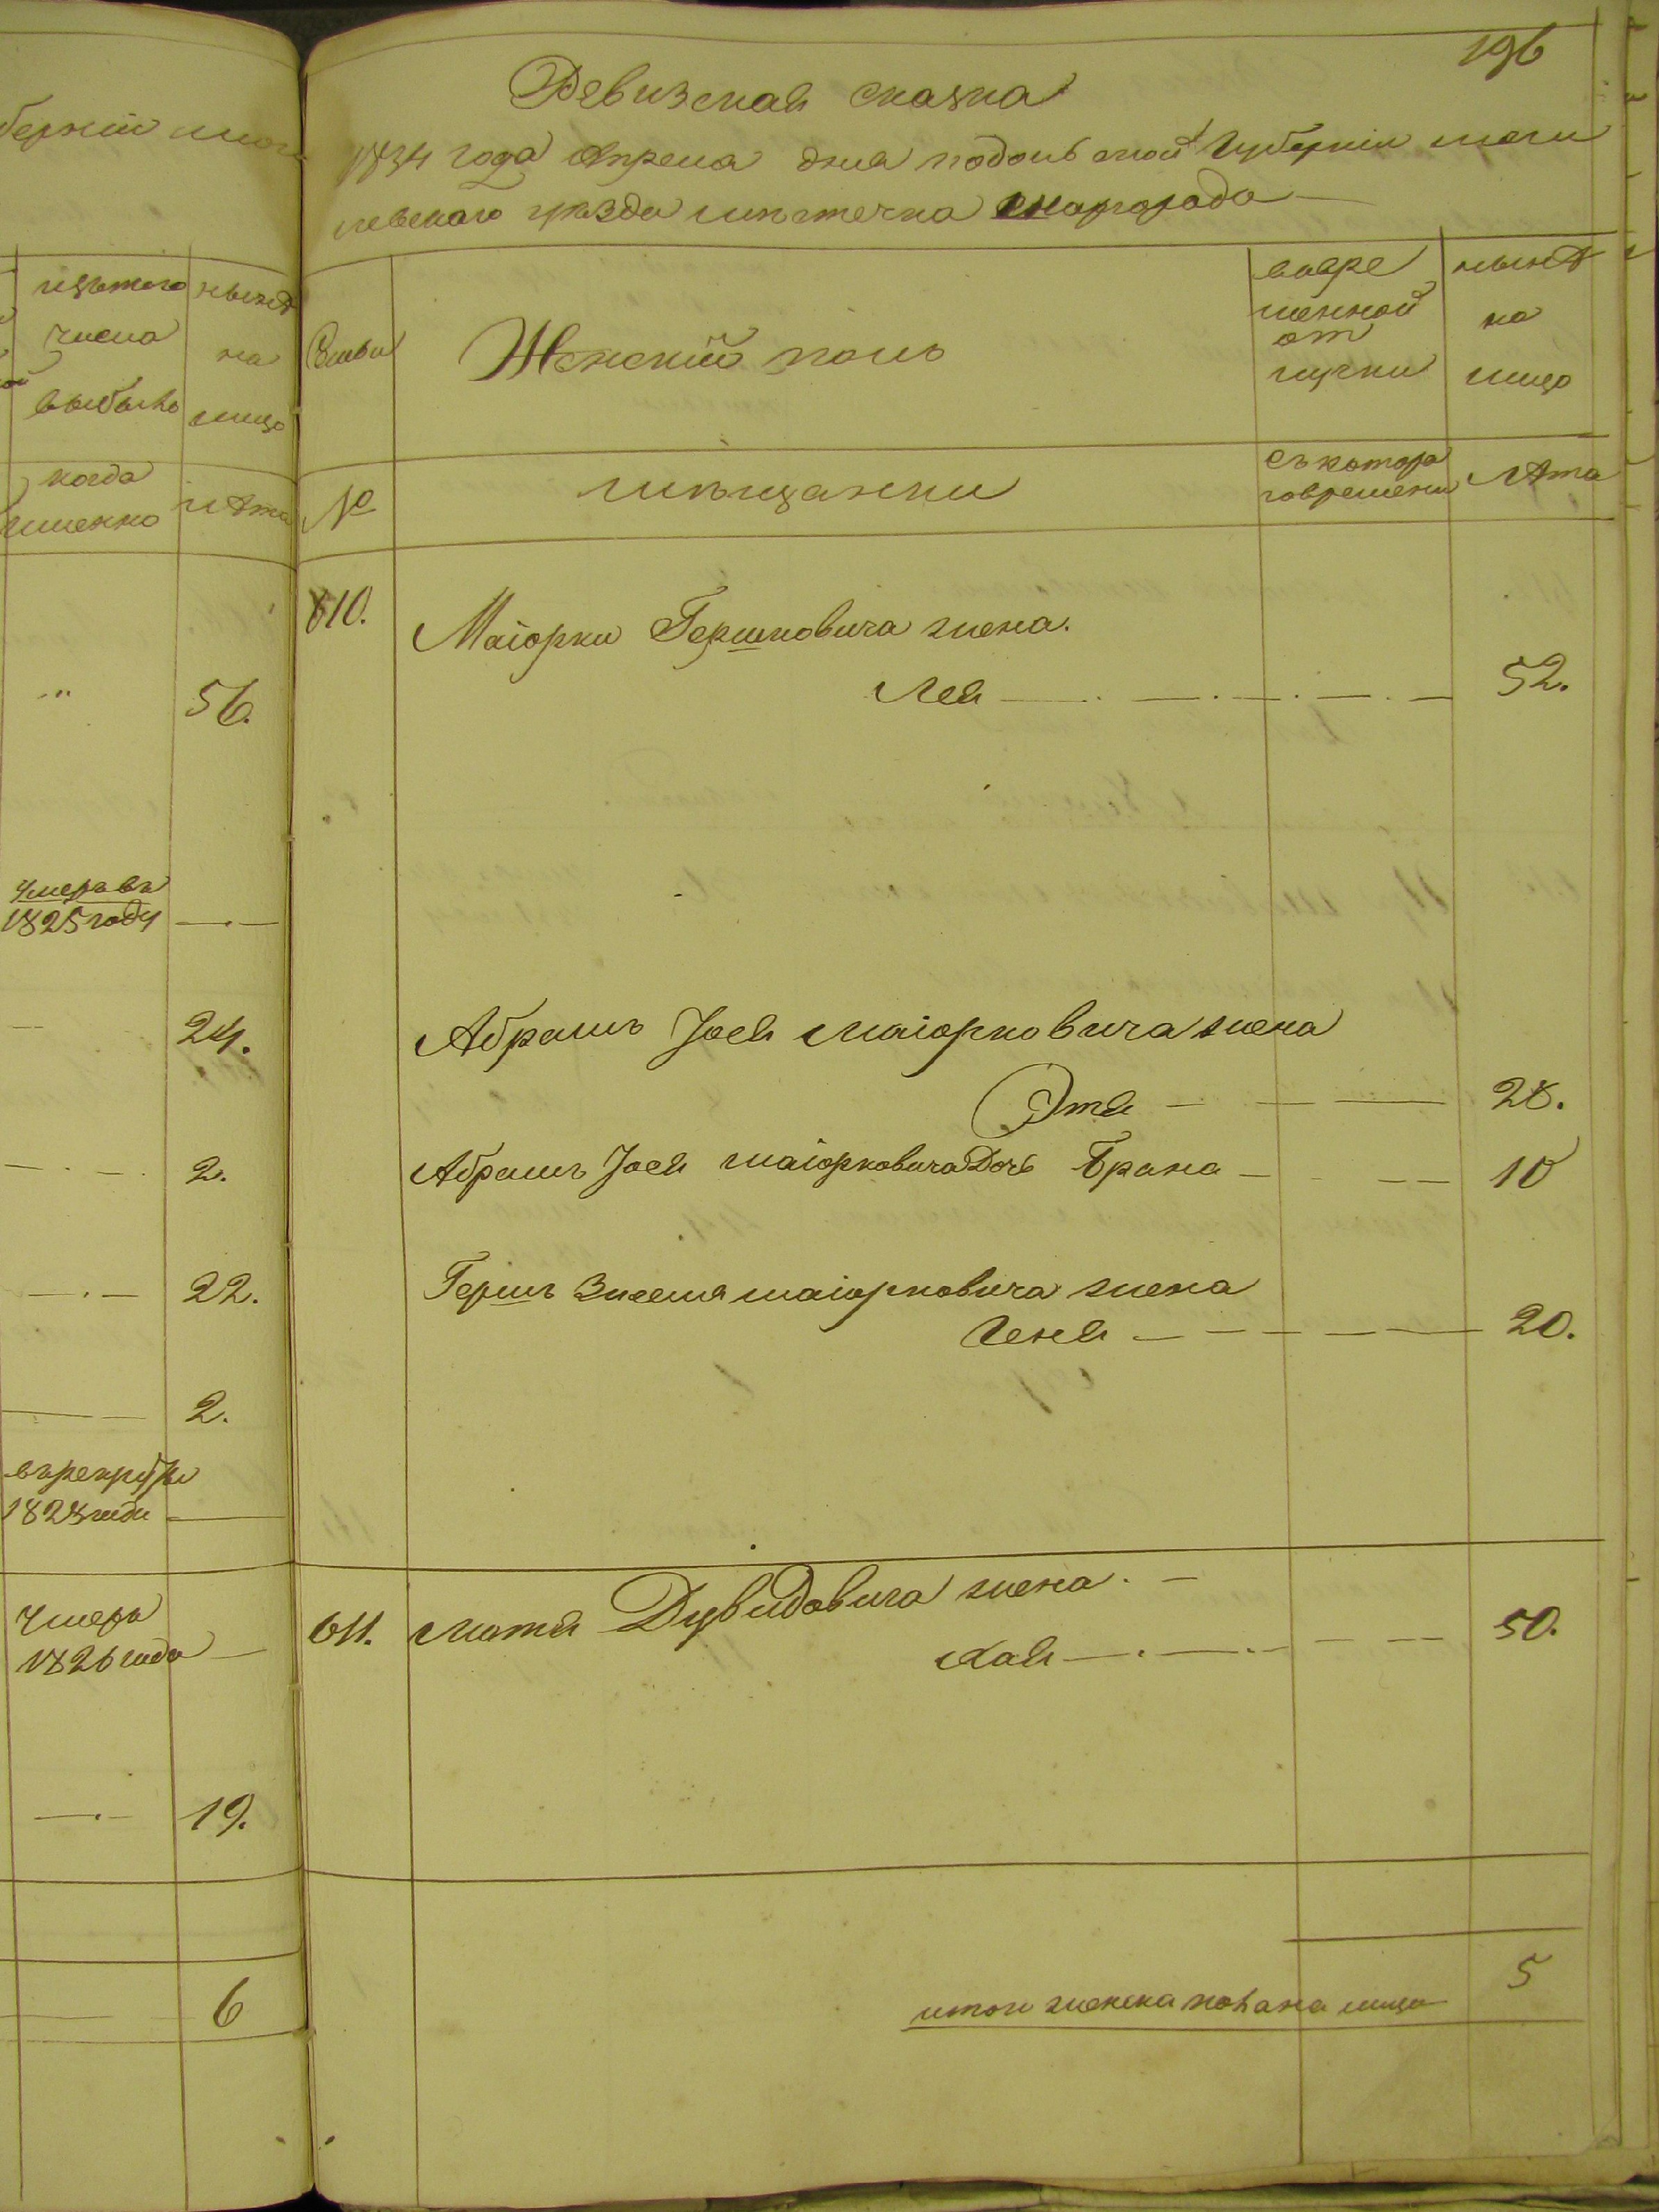 берніи моги
изъ того
числа
выбыло
нынѣ
на
лицо
когда
именно
лѣта
"
56.
умеръ въ
1825 году
24.
2.
22.
2.
въ рекруты
1828 года
Умеръ
1826 года
19.
6
196
Ревизская сказка
1834 года Апреля дня подольской Губерніи моги
левскаго уѣзда мѣстечка Снаргорада
Семьи
Женскій полъ
во вре
менной
от
лучки
нынѣ
на
лицо
№
мѣщанки
съ котора
го времени
лѣта
610.
Маіорки Гершковича жена.
Лея
52.
Абрамъ Іося Маіорковича жена
Этя
28.
Абрамъ Іося маіорковича Дочь Брана
10
Гершъ Зиселя маіорковича жена
Геня
20.
611.
Мотя Дувидовича жена.
Хая
50.
итого женска пола на лицо
5